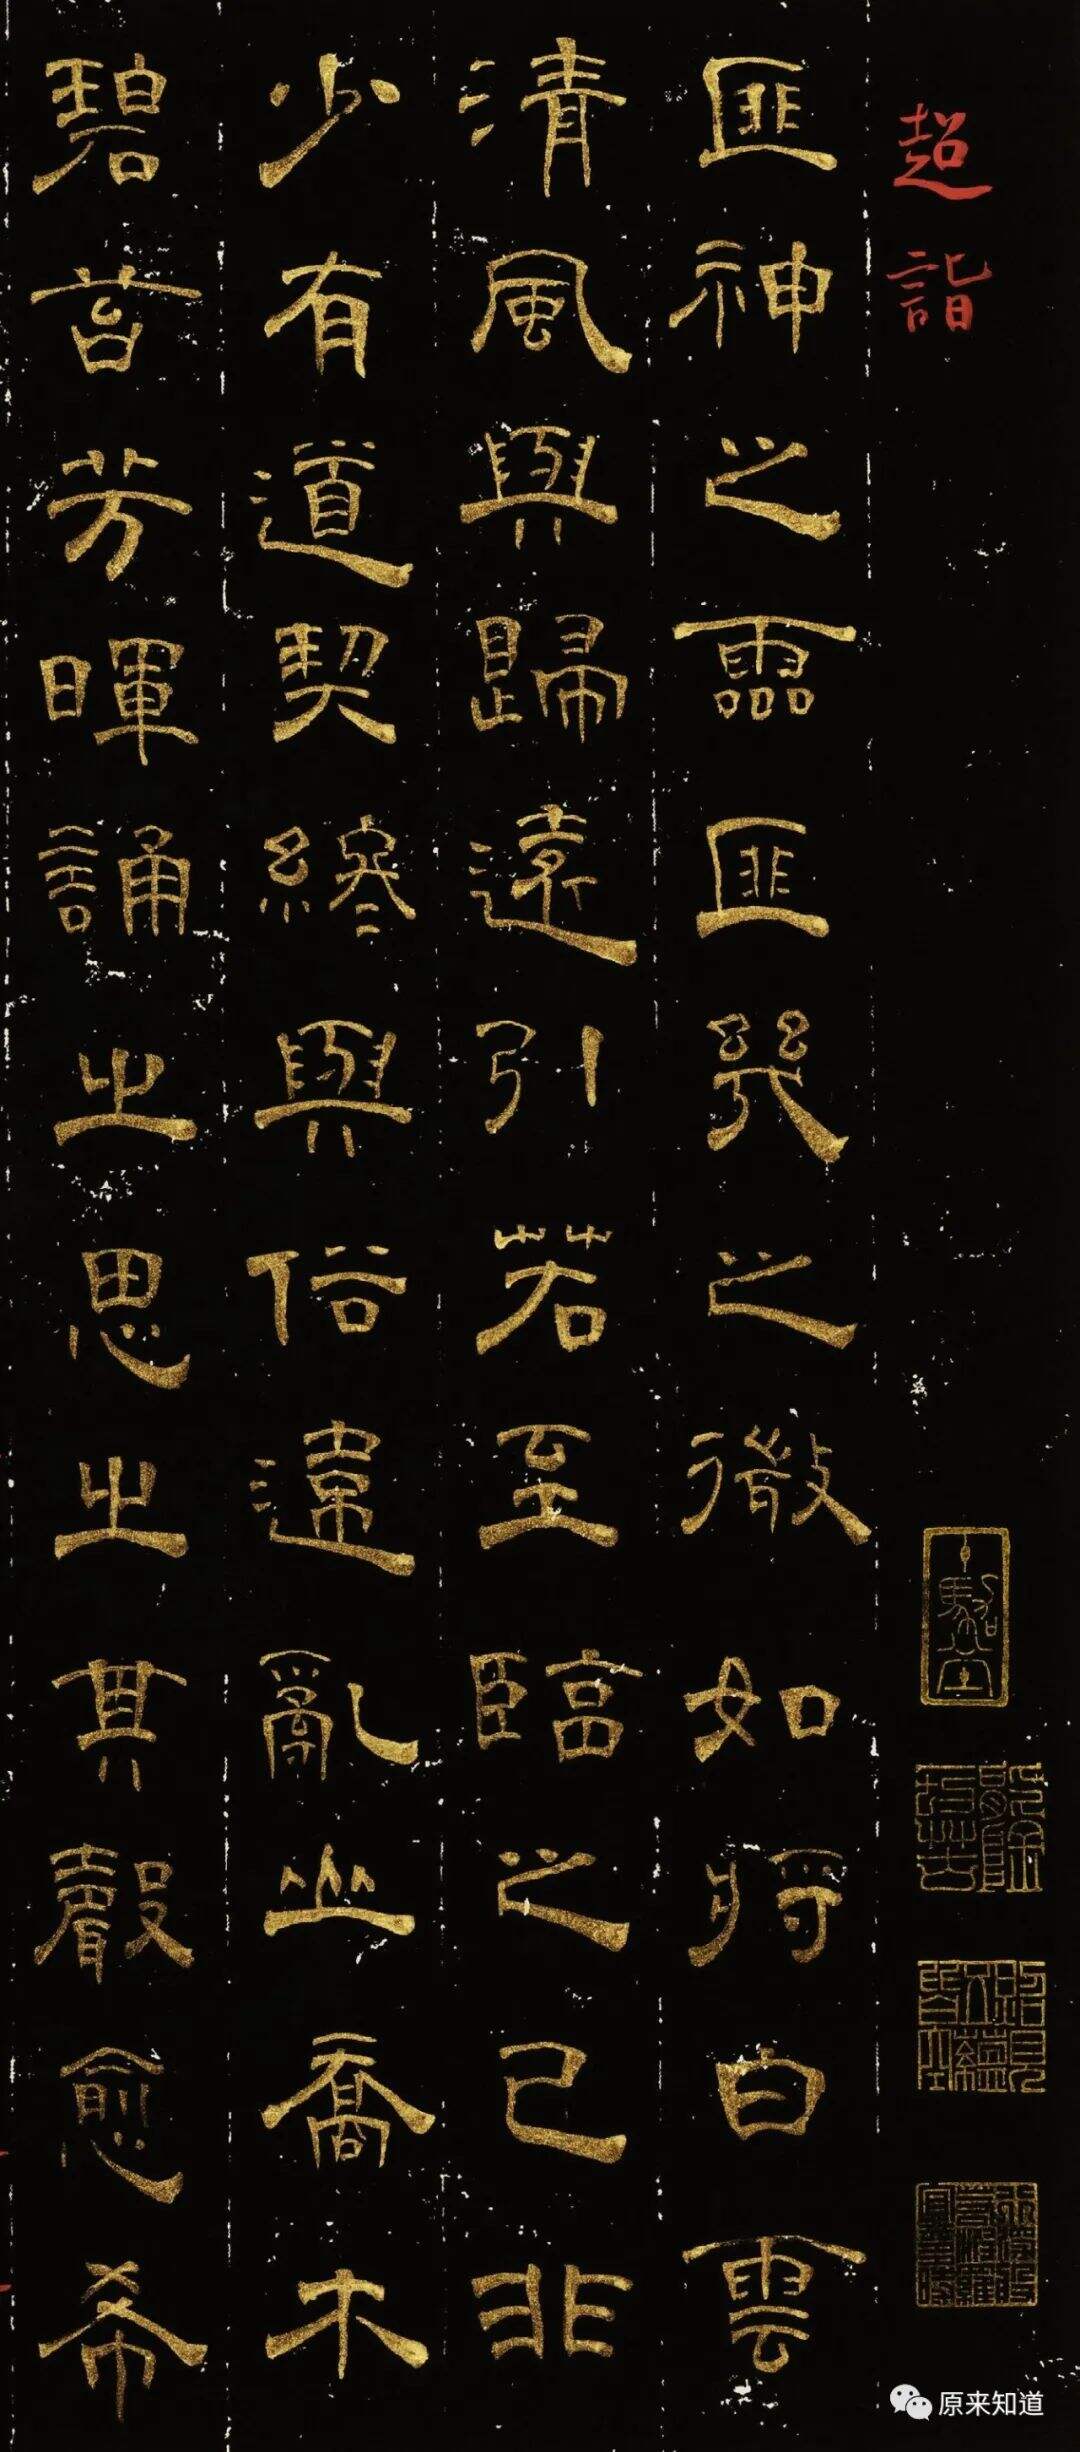 超詣
匪神之靈匪幾之微如將白雲
清風與歸遠引若至臨之已非
少有道契終與俗違亂山喬木
碧苔芳暉誦之思之其聲愈希
原来知道